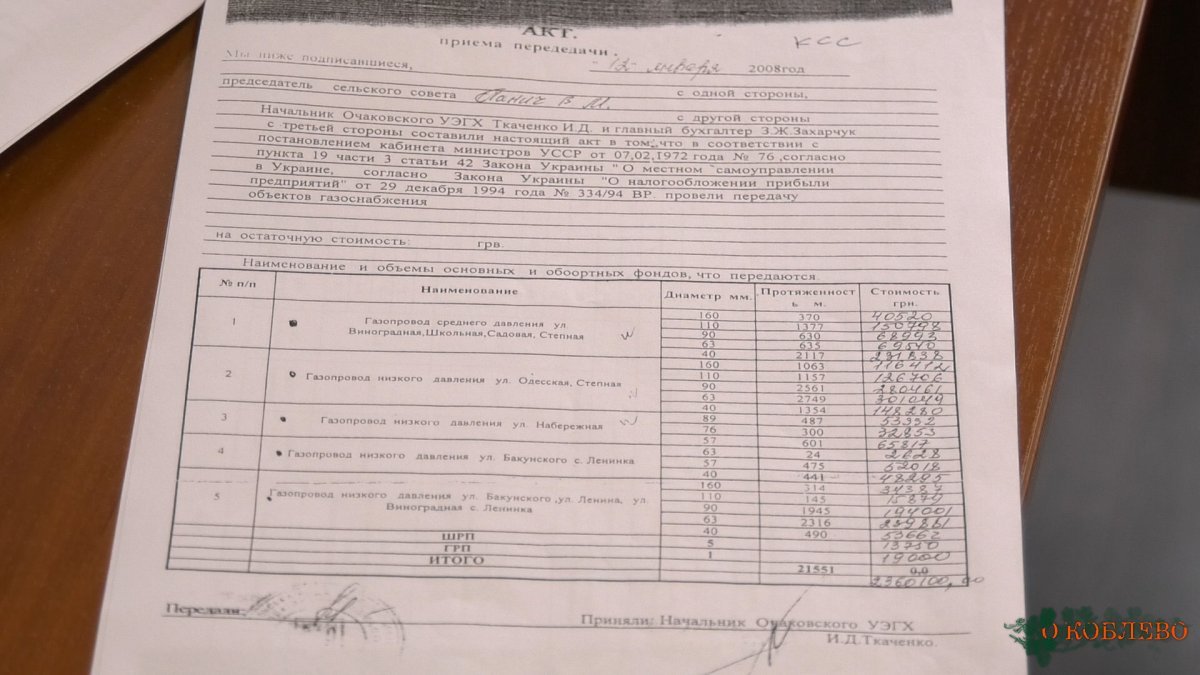 АКТ.
приема передедачи.
КСС
Мы ниже подписавшиеся,
"12" января 2008год
председатель сельского совета Панич В М. с одной стороны,
с другой стороны
Начальник Очаковского УЭГХ Ткаченко И.Д. и главный бухгалтер З.Ж.Захарчук
с третьей стороны составили настоящий акт в том, что в соответствии с
постановлением кабинета министров УССР от 07,02,1972 года № 76 ,согласно
пункта 19 части 3 статьи 42 Закона Украины " О местном самоуправлении
в Украине, согласно Закона Украины "О налогообложении прибыли
предприятий" от 29 декабря 1994 года № 334/94 ВР. провели передачу
объектов газоснабжения
на остаточную стоимость: грв.
Наименование и объемы основных и обоортных фондов, что передаются.
№ п/п Наименование Диаметр мм. Протяженност ь м. Стоимость грн.
1 Газопровод среднего давления ул.
Виноградная,Школьная,Садовая, Степная
160 370 40520
110 1377 150798
90 630 68993
63 635 69540
40 2117 231838
2 Газопровод низкого давления ул. Одесская, Степная
160 1063 116412
110 1157 126706
90 2561 280461
63 2749 301049
40 1354 148280
3 Газопровод низкого давления ул. Набережная
89 487 53332
76 300 32853
57 601 65817
4 Газопровод низкого давления ул. Бакунского с. Ленинка
63 24 2628
57 475 52018
40 441 48295
5 Газопровод низкого давления ул. Бакунского ,ул. Ленина, ул.
Виноградная с. Ленинка
160 314 34387
110 145 15879
90 1945
63 2316
40 490 53662
ШРП 5 13750
ГРП 1 19000
ИТОГО 21551 0,0
2360100,00
Передали:
Приняли: Начальник Очаковского УЭГХ
И.Д.Ткаченко.
О КОБЛЕВО